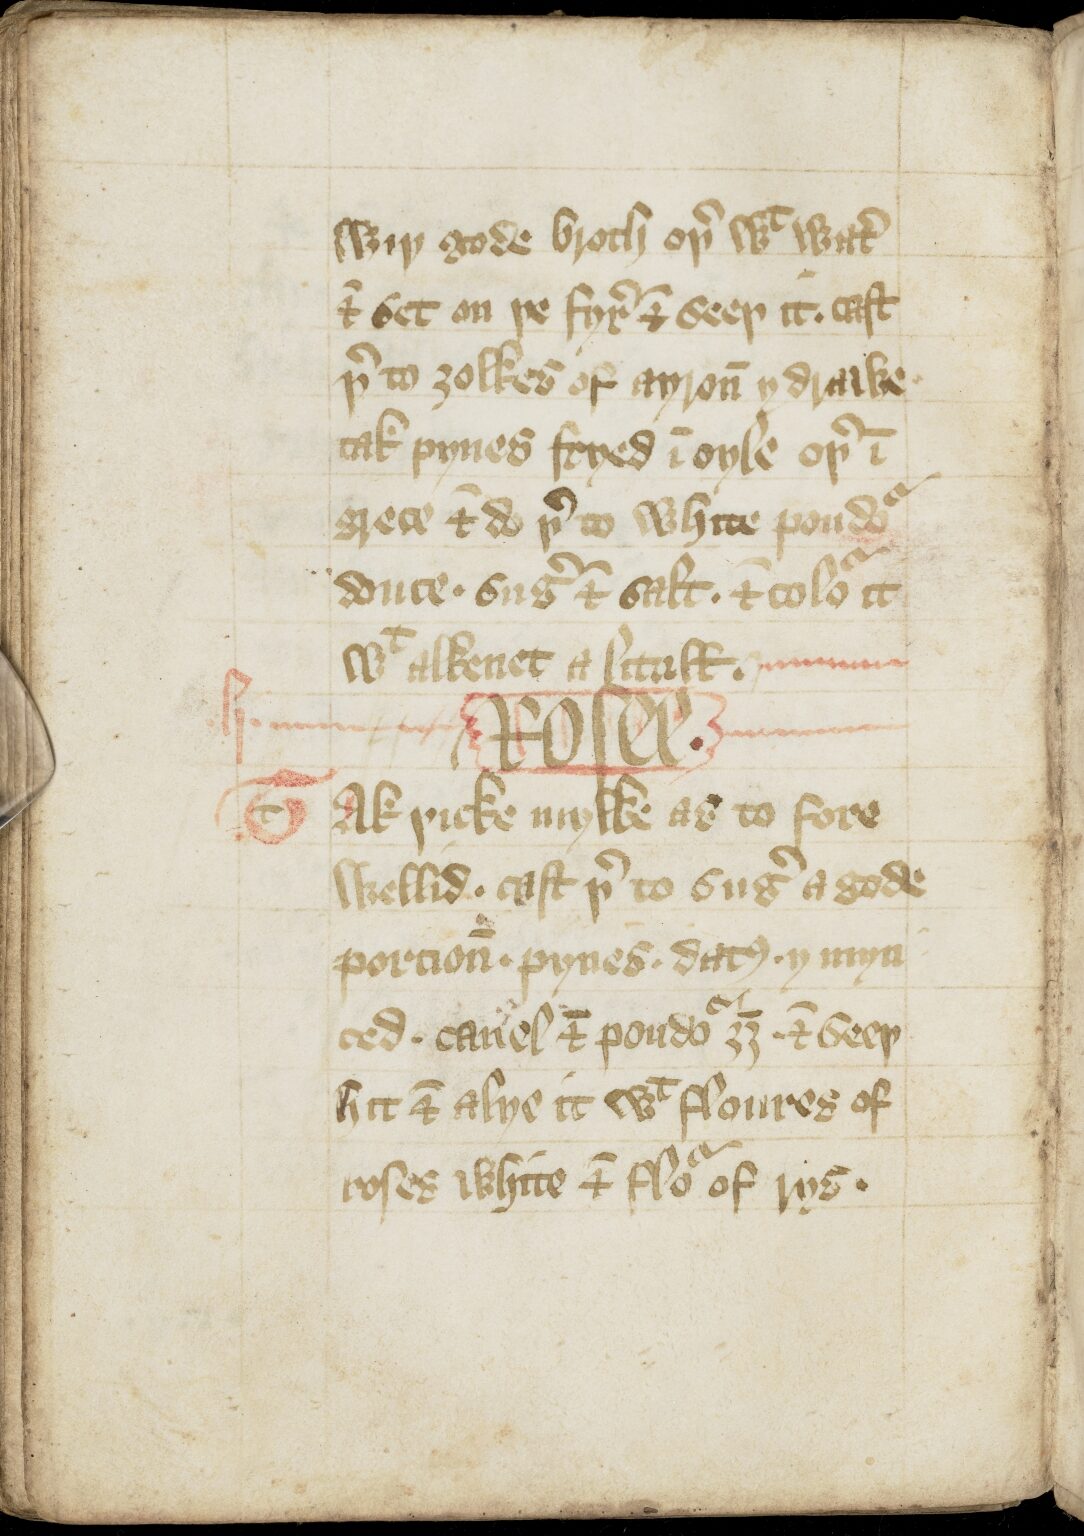 wiþ gode broth oþ̉ wᵗ watt̉
⁊ set on þe fyr̉ ⁊ seeþ it. cast
þ̉ to ȝolkes of ayron̄ y drawe
tak pynes fryed ī oyle oþ̉ ī
grece ⁊ do þ̉ to white poudoᵃ
douce. sug̉ ⁊ salt. ⁊ coloᵃ it
wᵗ alkenet a litull.
Rosee.
TAk þicke mylke as to fore
wellid. cast þ̉ to sug̉ a gode
porcion̄. pynes. datꝭ. y myn
ced. canel ⁊ poudoᵃ ȝȝ̄. ⁊ seeþ
hit ⁊ alye it wᵗ floures of
roses white ⁊ floᵃ of rys.